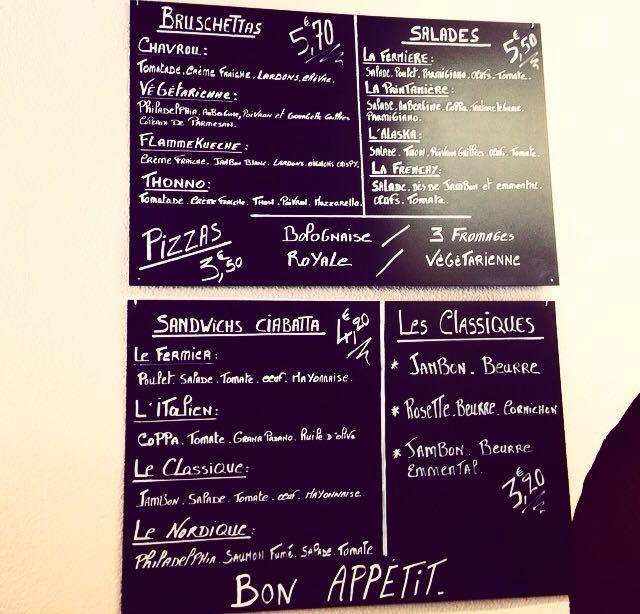 BRUSCHETTAS 5,€70
CHAVROU:
TOMATADE. CRÈME FRAICHE. LARDONS. CHÈVRE.
VÉGÉTARIENNE:
PHILADELPHIA. AUBERGINE, POIVRON ET COURGETTE GRILLÉS
COPEAUX DE PARMESAN.
FLAMMEKUECHE:
CRÈME FRAICHE. JAMBON BLANC. LARDONS. OIGNONS CRISPY.
THONNO:
TOMATADE. CRÈME FRAICHE. THON. POIVRON. MOZZARELLA.
SALADES 5,€50
LA FERMIÈRE:
SALADE. POULET. PARMIGIANO. OEUFS. TOMATE.
LA PRINTANIÈRE:
SALADE. AUBERGINE. COPPA.
PARMIGIANO.
L'ALASKA:
SALADE. THON. POIVRON GRILLÉES. OEUFS. TOMATE.
LA FRENCHY:
SALADE. DÉS DE JAMBON ET EMMENTAL.
OEUFS. TOMATE.
PIZZAS 3,€50
BOLOGNAISE / 3 FROMAGES
ROYALE / VÉGÉTARIENNE
SANDWICHS CIABATTA 4,€20
LE FERMIER:
POULET. SALADE. TOMATE. OEUF. MAYONNAISE.
L'ITALIEN:
COPPA. TOMATE. GRANA PADANO. HUILE D'OLIVE
LE CLASSIQUE:
JAMBON. SALADE. TOMATE. OEUF. MAYONNAISE.
LE NORDIQUE:
PHILADELPHIA. SAUMON FUMÉ. SALADE. TOMATE
LES CLASSIQUES
* JAMBON. BEURRE
* ROSETTE. BEURRE. CORNICHON
* JAMBON. BEURRE
EMMENTAL.
3,€20
BON APPÉTIT.